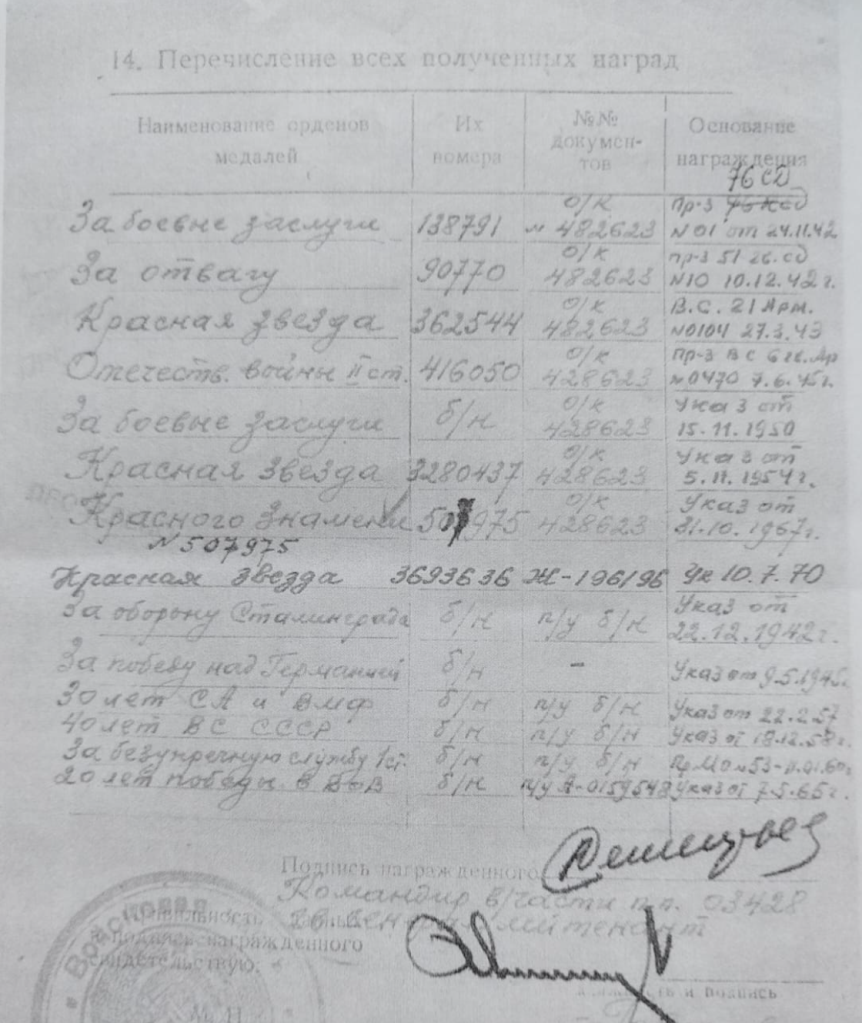 14. Перечисление всех полученных наград
Наименование орденов медалей | Их номера | №№ документов | Основание награждения
За боевые заслуги | 138791 | о/к № 482623 | Пр-з 76 СД №01 от 24.11.42
За отвагу | 90770 | о/к 482623 | пр-з 51 гв. сд №10 10.12.42 г.
Красная звезда | 362544 | о/к 482623 | В.С. 21 Арм. №0104 27.3.43
Отечеств. войны II ст. | 416050 | о/к 428623 | Пр-з ВС 6 гв. Ар №0470 7.6.45г.
За боевые заслуги | б/н | о/к 428623 | Указ от 15.11.1950
Красная звезда | 3280437 | о/к 428623 | Указ от 5.11.1954г.
Красного Знамени | 507975 | о/к 428623 | Указ от 31.10.1967г.
N 507975
Красная звезда | 3693636 | Ж-196196 | Ук 10.7.70
За оборону Сталинграда | б/н | п/у б/н | Указ от 22.12.1942г.
За победу над Германией | б/н | - | Указ от 9.5.1945г.
30 лет СА и ВМФ | б/н | п/у б/н | Указ от 22.2.57
40 лет ВС СССР | б/н | п/у б/н | Указ от 18.12.58г.
За безупречную службу 1 ст. | б/н | п/у б/н | Пр МО №53
20 лет победы в ВОВ | б/н | п/у А-0159548 | Указ от 7.5.65г.
Подпись награжденного
Командир в/части п.п. 03428
генерал лейтенант
подпись награжденного
свидетельствую:
М. П.
и подпись